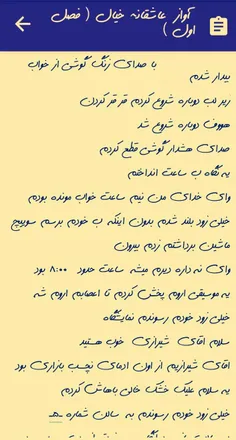 آواز عاشقانه خیال ( فصل
اول )
با صدای زنگ گوشی از خواب
بیدار شدم
زیر لب دوباره شروع کردم قر قر کردن
هووف دوباره شروع شد
صدای هشدار گوشی قطع کردم
یه نگاه ب ساعت انداختم
وای خدای من نیم ساعت خواب مونده بودم
خیلی زود بلند شدم بدون اینکه ب خودم برسم سوییچ
ماشین برداشتم زدم بیرون
وای نه داره دیرم میشه ساعت حدود ۸:۰۰ بود
یه موسیقی اروم پخش کردم تا اعصابم اروم شه
خیلی زود خودم رسوندم نمایشگاه
سلام اقای شیرازی خوب هستید
اقای شیرازیم از اون ادمای نچسب بازاری بود
یه سلام علیک خشک خالی باهاش کردم
خیلی زود خودم رسوندم به سالن شماره